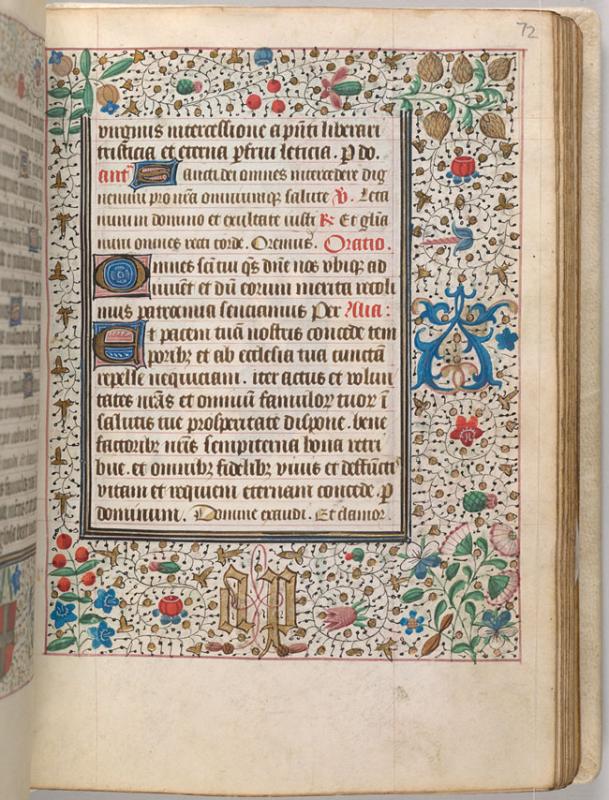 72
virginis intercessione a pn̄ti liberari
tristicia et eterna ꝑfrui leticia. P do.
ant̄ Sancti dei omnes intercedere dig
nemini pro nr̄a omniumqꝫ salute ℣. Leta
mini in domino et exultate iusti ℟. Et glīa
mini omnes recti corde. Oremus. Oratio.
Omnes sc̄i tui qs̄ dn̄e nos vbiqꝫ ad
iuuēt et dū eorum merita recoli
mus patrocinia senciamus Per Alia:
Et pacem tuā nostris concede tem
poribꝫ et ab ecclesia tua cunctā
repelle nequiciam. iter actus et volun
tates nr̄as et omniū famulorꝝ tuorꝝ ī
salutis tue prosperitate dispone. bene
factoribꝫ nr̄is sempiterna bona retri
bue. et omnibꝫ fidelibꝫ viuis et deffūctis
vitam et requiem eternam concede. P
dominum. Domine exaudi. Et clamor
ap